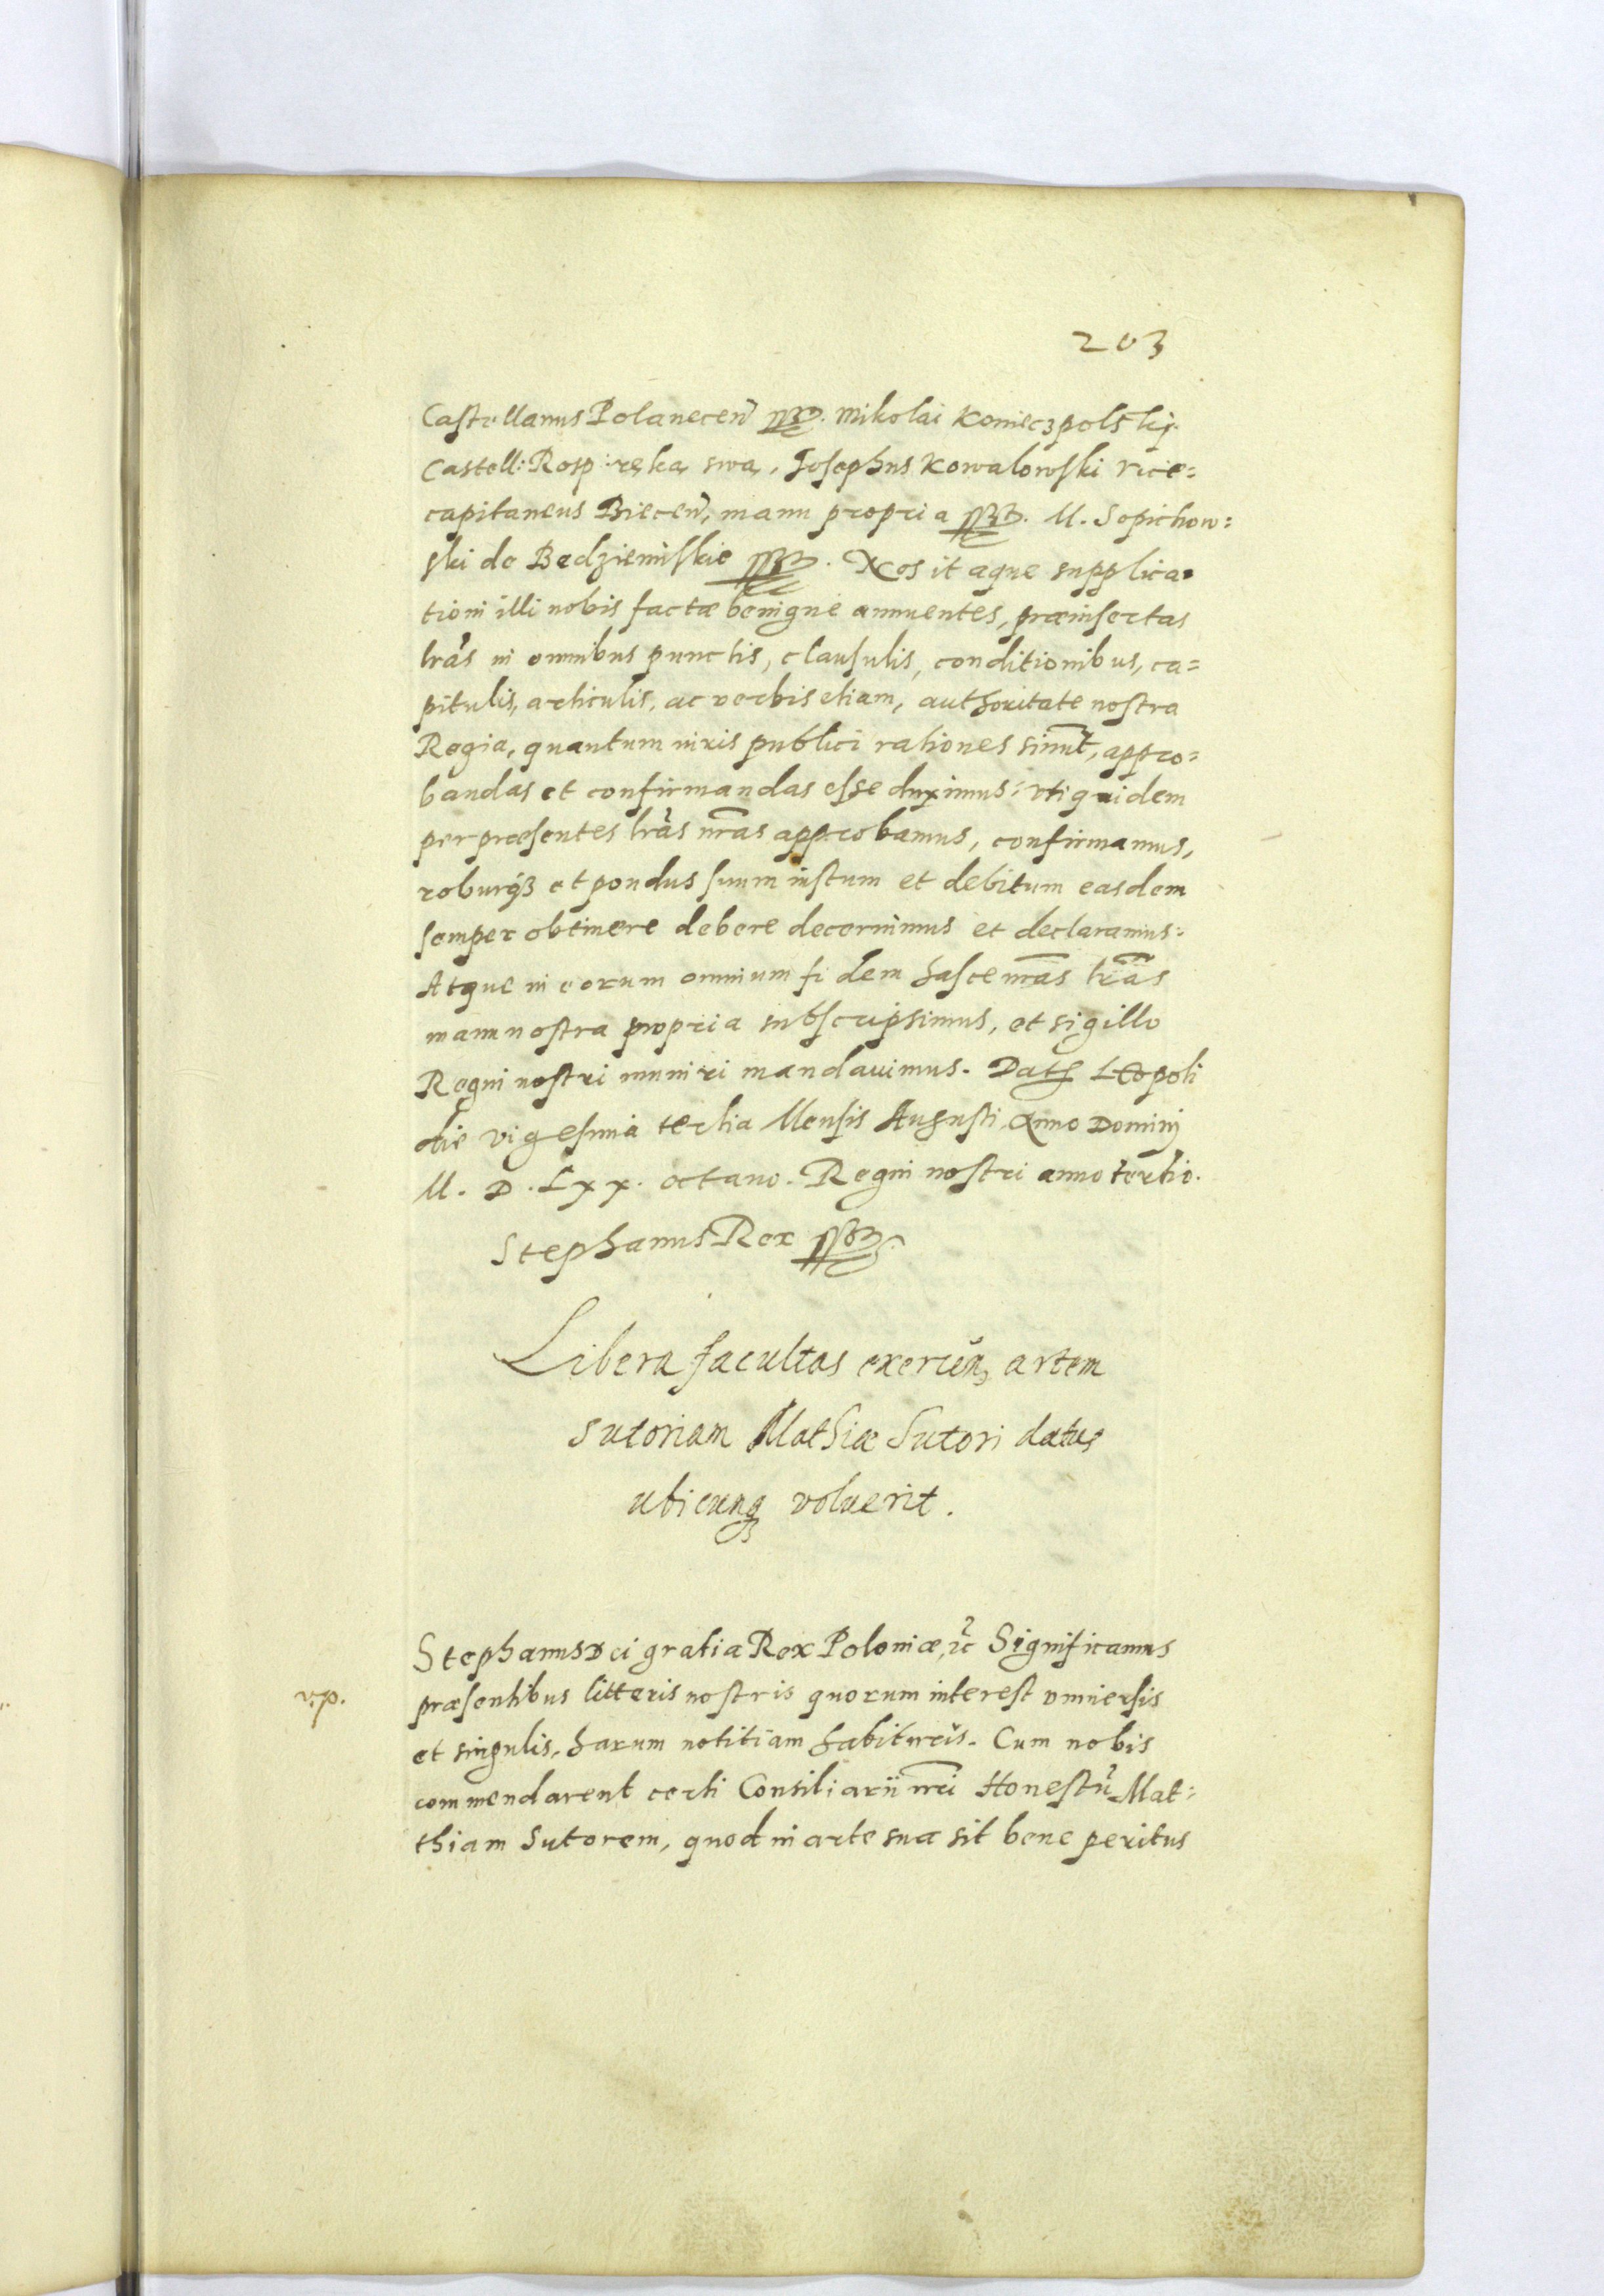 203
Castellanus Polanecen̄ ssz. Mikolai Konieczpolskj.
Castell: Rosp: ręką swą, Josephus Kowalowski vice=
capitaneus Biecen̄, manu propria ssz. M. Sopichow:
ski de Bedziemiskie ssz. Nos itaque supplica=
tioni illi nobis factæ benigne annuentes, præinsertas
lrãs in omnibus punctis, clausulis, conditionibus, ca=
pitulis, articulis, ac verbis etiam, authoritate nostra
Regia, quantum iuris publici rationes sinūt, appro=
bandas et confirmandas esse duximus: vti quidem
per præsentes lrãs nrãs approbamus, confirmamus,
roburq3 et pondus suum iustum et debitum easdem
semper obtinere debere decernimus et declaramus:
Atque in eorum omnium fidem hasce nrãs lrãs
manu nostra propria subscripsimus, et sigillo
Regni nostri muniri mandauimus. Dat Leopoli
die vigesima tertia Mensis Augusti, Anno Dominj
M. D. Lxx. octauo. Regni nostri anno tertio.
Stephanus Rex ssz.
Libera facultas exercen, artem
sutoriam Mathiæ Sutori datus
ubicunq3 voluerit.
Stephanus Dei gratia Rex Poloniæ, ꝛc̃ Significamus
v.p.
præsentibus litteris nostris quorum interest vniuersis
et singulis, harum notitiam habituris. Cum nobis
commendarent certi Consiliarii nr̃i Honestū Mat:
thiam Sutorem, quod in arte sua sit bene peritus